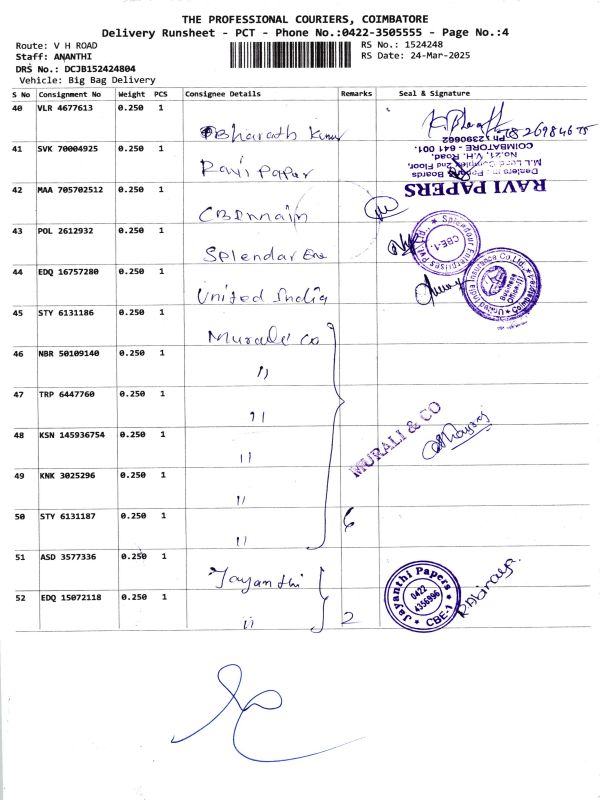 THE PROFESSIONAL COURIERS, COIMBATORE
Delivery Runsheet - PCT - Phone No.:0422-3505555 - Page No.:4
Route: V H ROAD RS No.: 1524248
Staff: ANANTHI RS Date: 24-Mar-2025
DRS No.: DCJB152424804
Vehicle: Big Bag Delivery
S No Consignment No Weight PCS Consignee Details Remarks Seal & Signature
40 VLR 4677613 0.250 1 Bharath Kumar
41 SVK 70004925 0.250 1 Ravi Paper
RAVI PAPERS
M.L. Lord Complex, 2nd Floor,
No.21, V.H. Road,
COIMBATORE - 641 001.
Ph: 2390662
42 MAA 705702512 0.250 1 CBE main
43 POL 2612932 0.250 1 Splendar Ene
Splendour Enterprises Pvt. Ltd.,
CBE-1.
44 EDQ 16757280 0.250 1 United India
United India Insurance Co. Ltd.
Business Office-III
Coimbatore
45 STY 6131186 0.250 1 Murali co
46 NBR 50109140 0.250 1 "
47 TRP 6447760 0.250 1 "
48 KSN 145936754 0.250 1 "
MURALI & CO
49 KNK 3025296 0.250 1 "
50 STY 6131187 0.250 1 " 6
51 ASD 3577336 0.250 1 Jayanthi
52 EDQ 15072118 0.250 1 " 2
Jayanthi Papers
0422
4356996
CBE-1